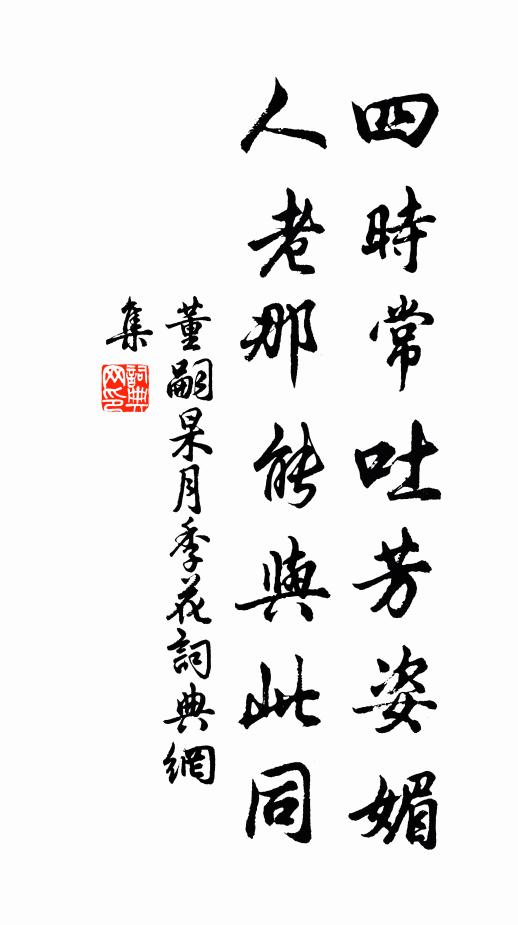 四時常吐芳姿媚
人老那能與此同
董嗣杲月季花詞典網
集
詞典
网印